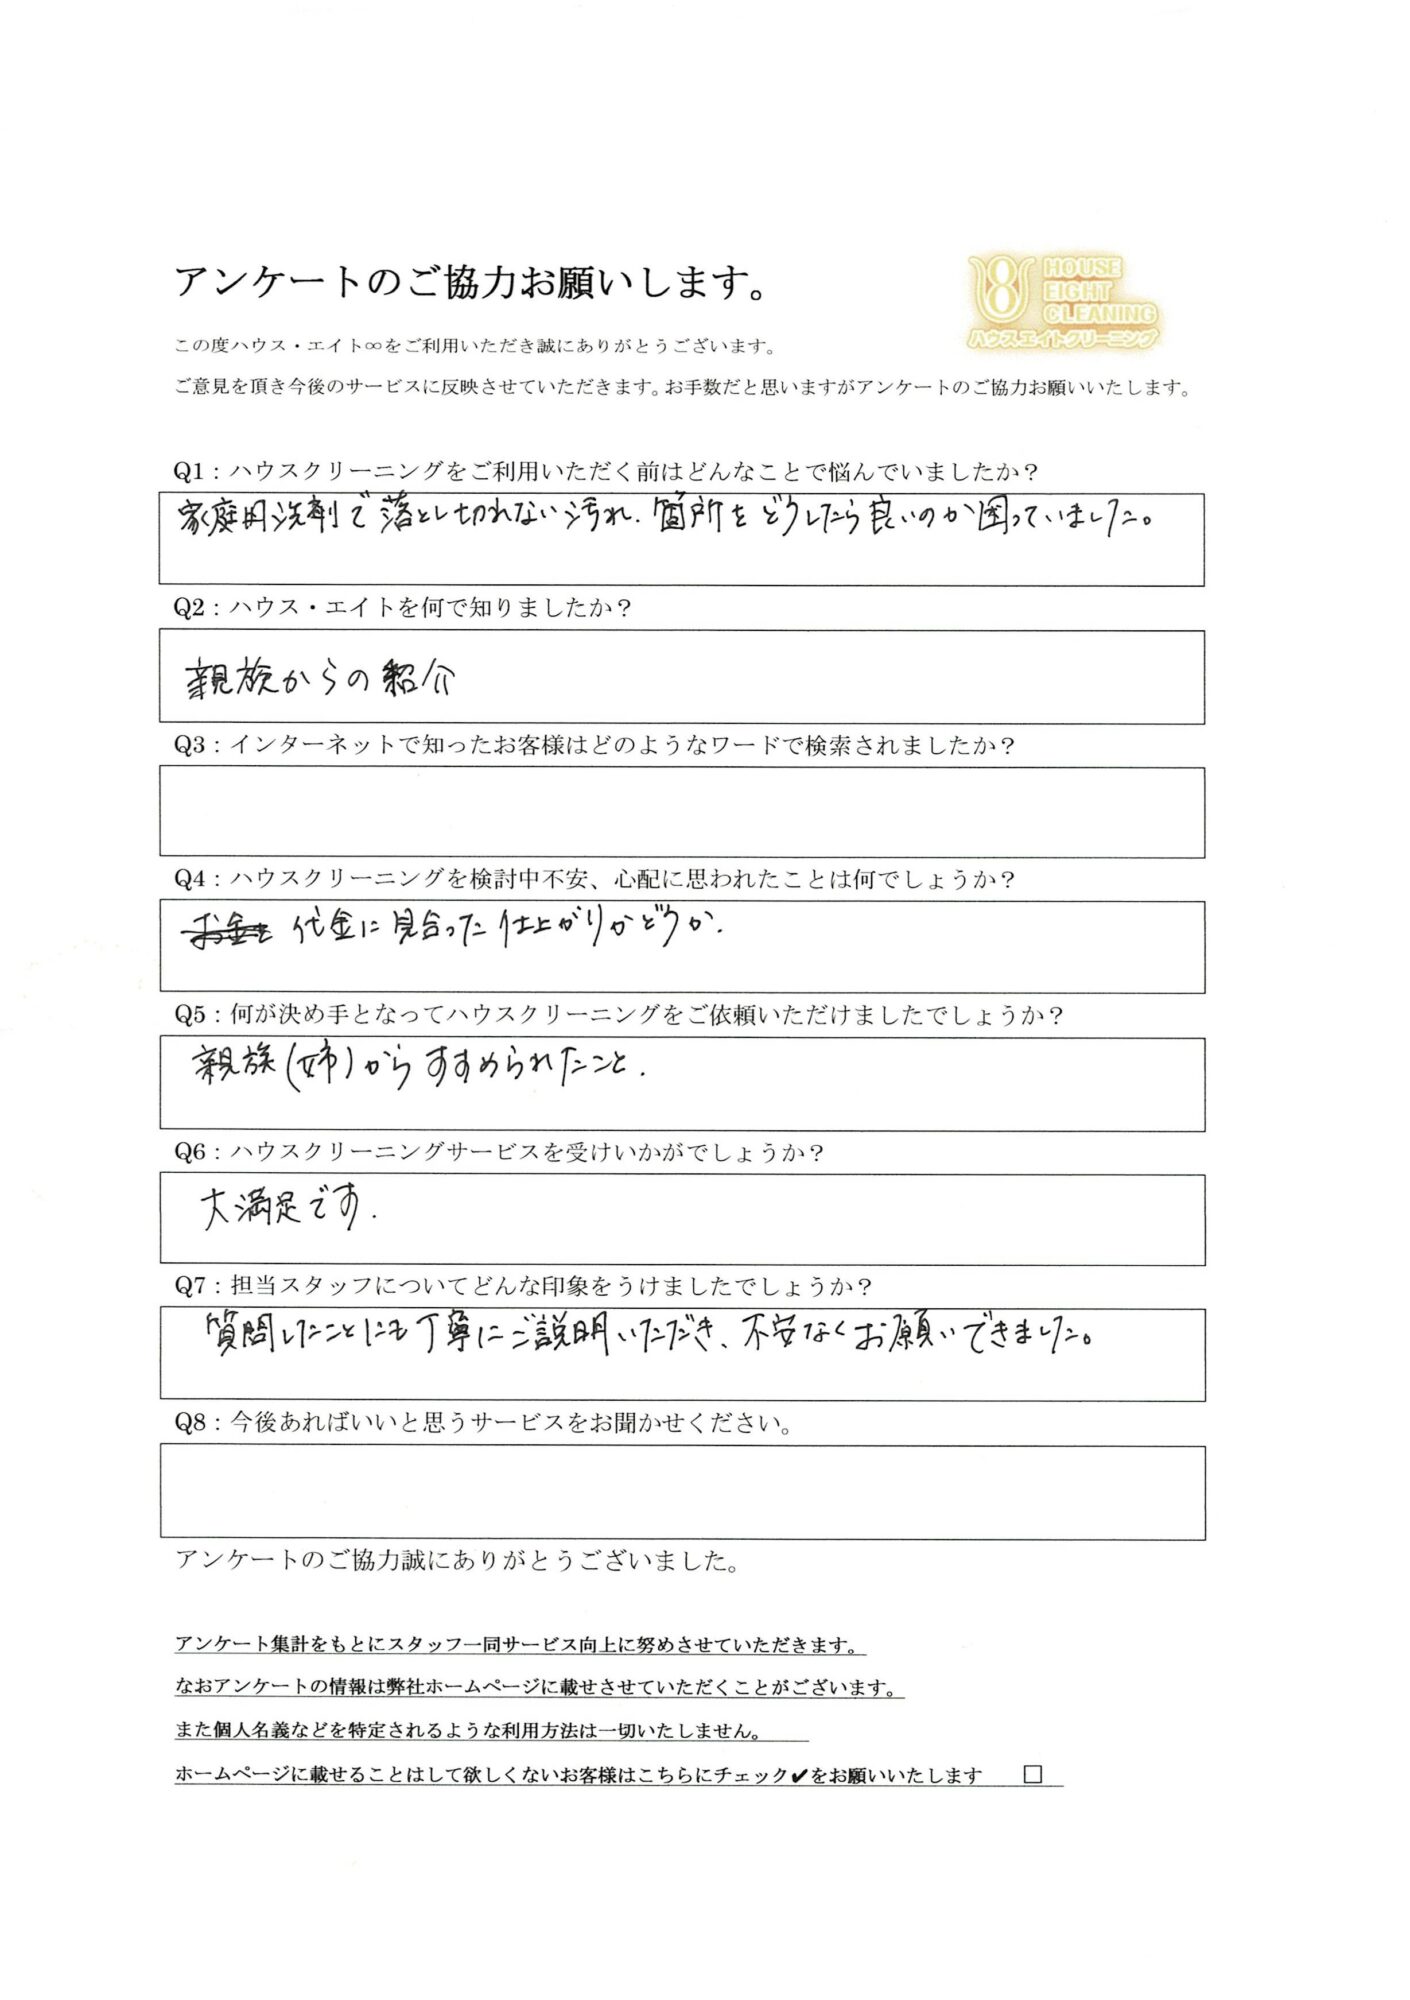 アンケートのご協力お願いします。
HOUSE
EIGHT
CLEANING
ハウスエイトクリーニング
この度ハウス・エイト∞をご利用いただき誠にありがとうございます。
ご意見を頂き今後のサービスに反映させていただきます。お手数だと思いますがアンケートのご協力お願いいたします。
Q1：ハウスクリーニングをご利用いただく前はどんなことで悩んでいましたか？
家庭用洗剤で落とし切れない汚れ、箇所をどうしたら良いのか困っていました。
Q2：ハウス・エイトを何で知りましたか？
親族からの紹介
Q3：インターネットで知ったお客様はどのようなワードで検索されましたか？
Q4：ハウスクリーニングを検討中不安、心配に思われたことは何でしょうか？
お金を 代金に見合った仕上がりかどうか.
Q5：何が決め手となってハウスクリーニングをご依頼いただけましたでしょうか？
親族(姉)からすすめられたこと.
Q6：ハウスクリーニングサービスを受けいかがでしょうか？
大満足です.
Q7：担当スタッフについてどんな印象をうけましたでしょうか？
質問したことにも丁寧にご説明いただき、不安なくお願いできました。
Q8：今後あればいいと思うサービスをお聞かせください。
アンケートのご協力誠にありがとうございました。
アンケート集計をもとにスタッフ一同サービス向上に努めさせていただきます。
なおアンケートの情報は弊社ホームページに載せさせていただくことがございます。
また個人名義などを特定されるような利用方法は一切いたしません。
ホームページに載せることはして欲しくないお客様はこちらにチェック✔をお願いいたします □